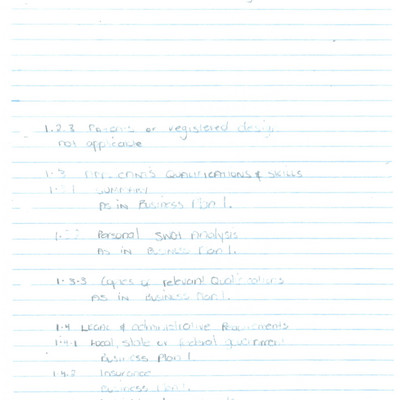 1.2.3 Patents or registered design
not applicable
1.3 APPLICANTS QUALIFICATIONS & SKILLS
1.3.1 SUMMARY
AS IN Business Plan 1.
1.3.2 Personal SWOT Analysis
AS IN Business Plan 1.
1.3.3 Copies of relevant Qualifications
AS IN Business Plan 1.
1.4 LEGAL & administrative Requirements
1.4.1 Local, State or federal government
Business Plan 1
1.4.2 Insurance
Business Plan 1.